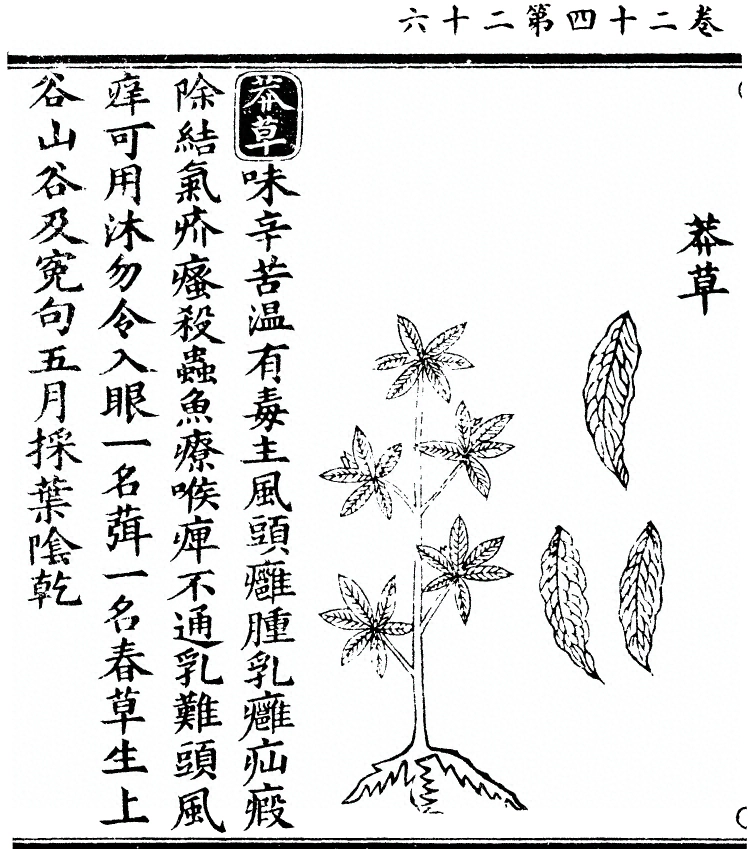 卷二十四第二十六
莽草
莽草味辛苦温有毒主風頭癰腫乳癰疝瘕
除結氣疥瘙殺蟲魚療喉痺不通乳難頭風
痒可用沐勿令入眼一名葞一名春草生上
谷山谷及寃句五月採葉陰乾